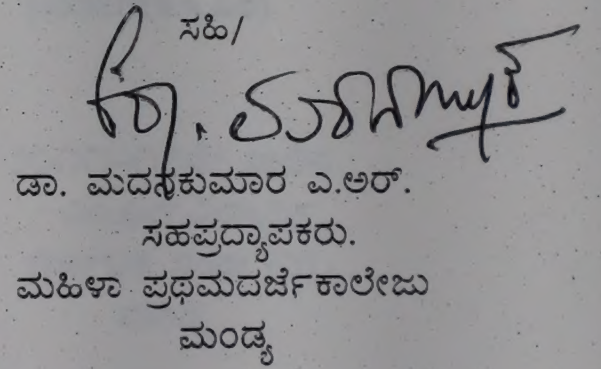 ಸಹಿ/
ಡಾ. ಮದನಕುಮಾರ ಎ.ಅರ್.
ಸಹಪ್ರದ್ಯಾಪಕರು.
ಮಹಿಳಾ ಪ್ರಥಮದರ್ಜೆಕಾಲೇಜು
ಮಂಡ್ಯ